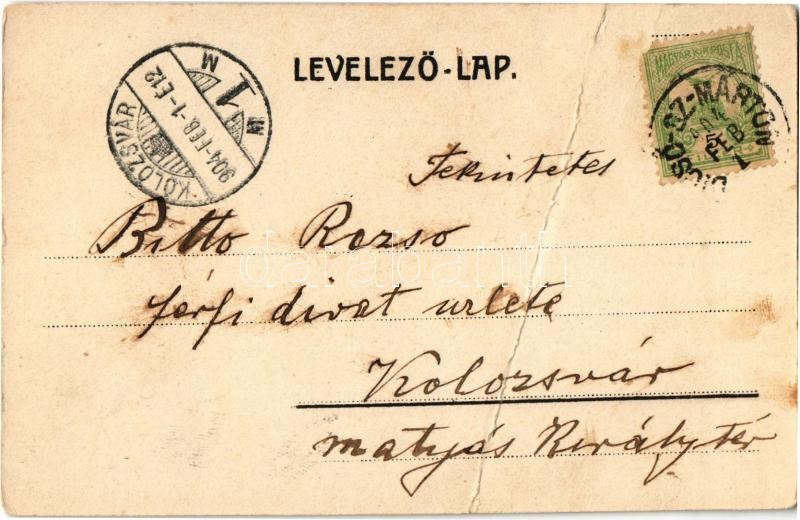 LEVELEZŐ-LAP.
MAGYAR KIR. POSTA
DICSŐ-SZ-MÁRTON
904
FEB
1
KOLOZSVÁR
904·FEB.·1-É12
M
1
M
Tekintetes
Bitto Rezso
férfi divat uzlete
Kolozsvár
matyás Királytér
darabanth